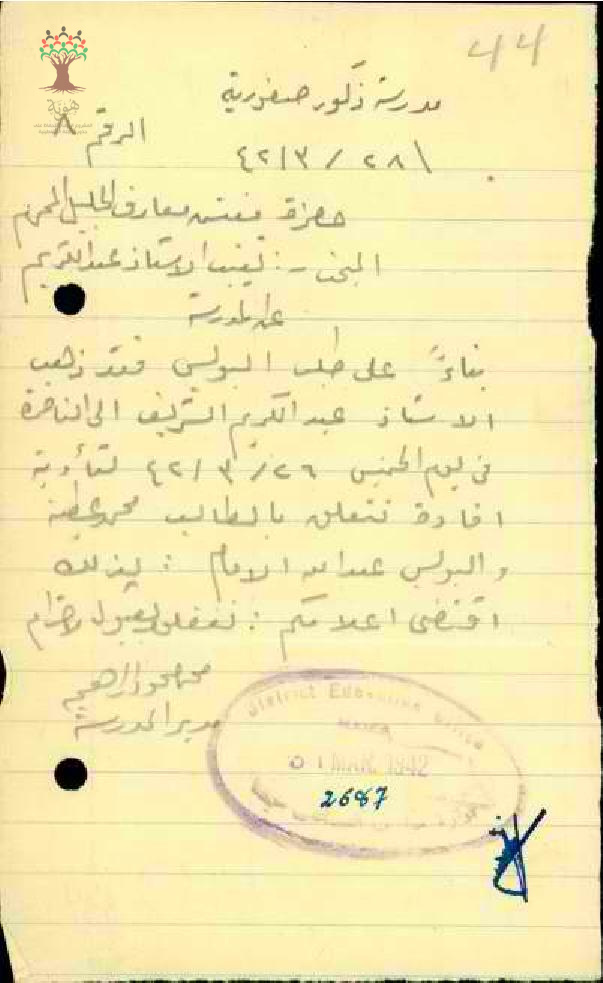 44
هوية
مدرسة ذكور صفورية
الرقم ٨
٢٨ / ٣ / ٤٢
حضرة مفتش معارف الجليل المحترم
المبحث :- تغيب الاستاذ عبد الكريم
عن المدرسة
بناءً على طلب البوليس فقد ذهب
الاستاذ عبد الكريم الشريف الى الناصرة
في يوم الخميس ٢٦ / ٣ / ٤٢ لتأدية
افادة تتعلق بالطالب محمد
والبوليس عبد الله الامام : لذلك
اقتضى اعلامكم : تفضلوا بقبول الاحترام
محمد محمود ابراهيم
مدير المدرسة
District Education Office
HAIFA
31 MAR. 1942
2687